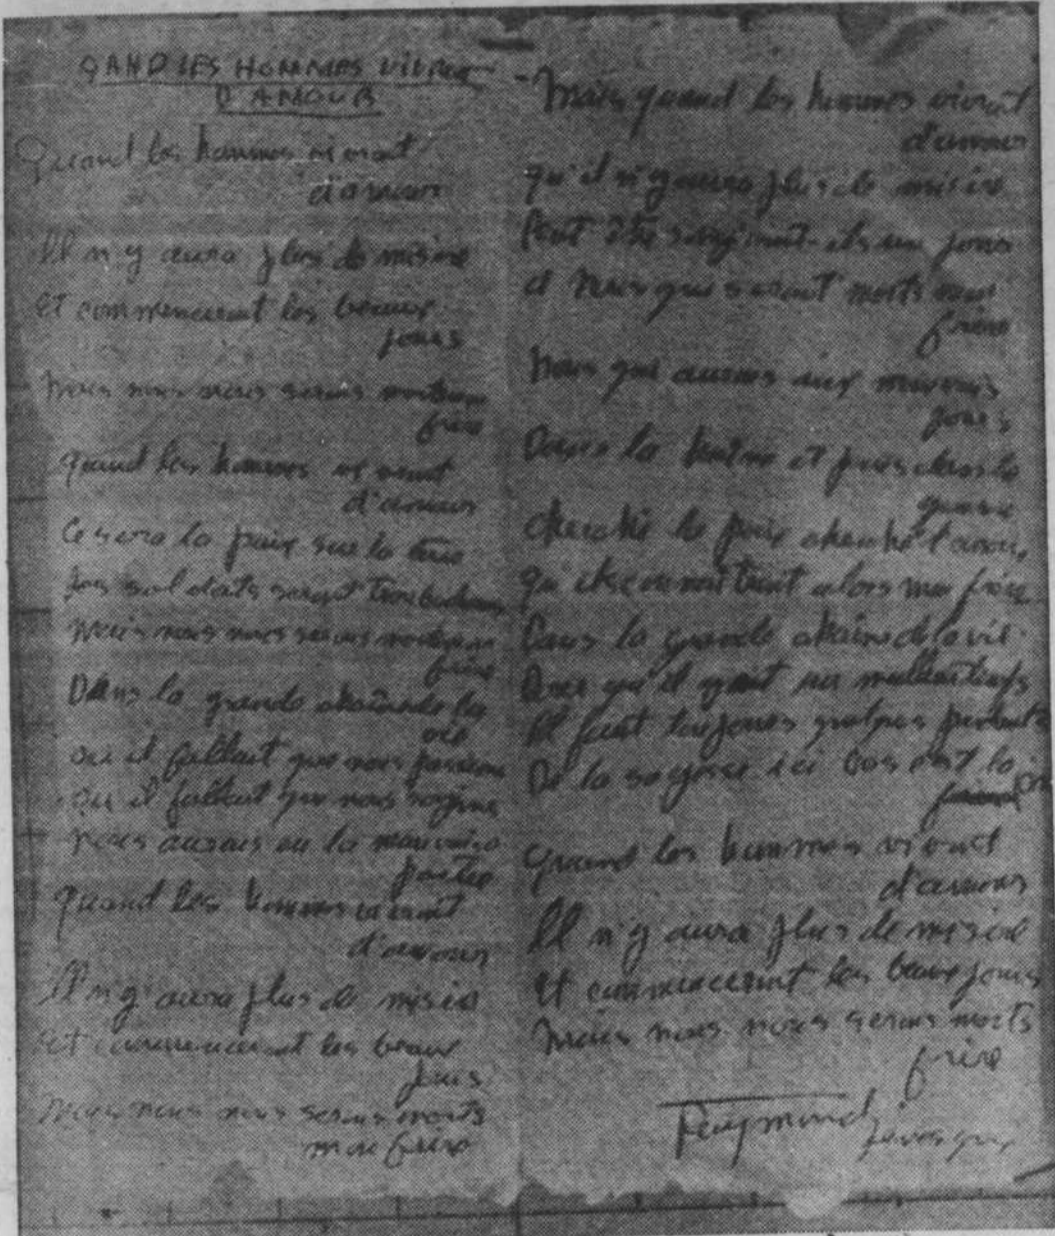 QAND LES HOMMES VIVRONT
D'AMOUR
Quand les hommes vivront
d'amour
Il n'y aura plus de misère
Et commenceront les beaux
jours
Mais nous nous serons morts mon
frère
Quand les hommes vivront
d'amour
Ce sera la paix sur la terre
Les soldats seront troubadours
Mais nous nous serons morts mon
frère
Dans la grande chaîne de la
vie
Où il fallait que nous passions
Où il fallait que nous soyions
Nous aurons eu la mauvaise
partie
Quand les hommes vivront
d'amour
Il n'y aura plus de misère
Et commenceront les beaux
jours
Mais nous nous serons morts
mon frère
- Mais quand les hommes vivront
d'amour
qu'il n'y aura plus de misère
Peut être songeront-ils un jour
à nous qui seront morts mon
frère
Nous qui aurons aux mauvais
jours
Dans la haine et puis dans la
guerre
cherché la paix cherché l'amour
qu'ils connaîtront alors mon frère
Dans la grande chaîne de la vie
Pour qu'il y ait un meilleur temps
Il faut toujours quelques perdants
De la sagesse ici bas c'est le
Quand les hommes vivront
d'amour
Il n'y aura plus de misère
Et commenceront les beaux jours
Mais nous nous serons morts
frère
Raymond Levesque